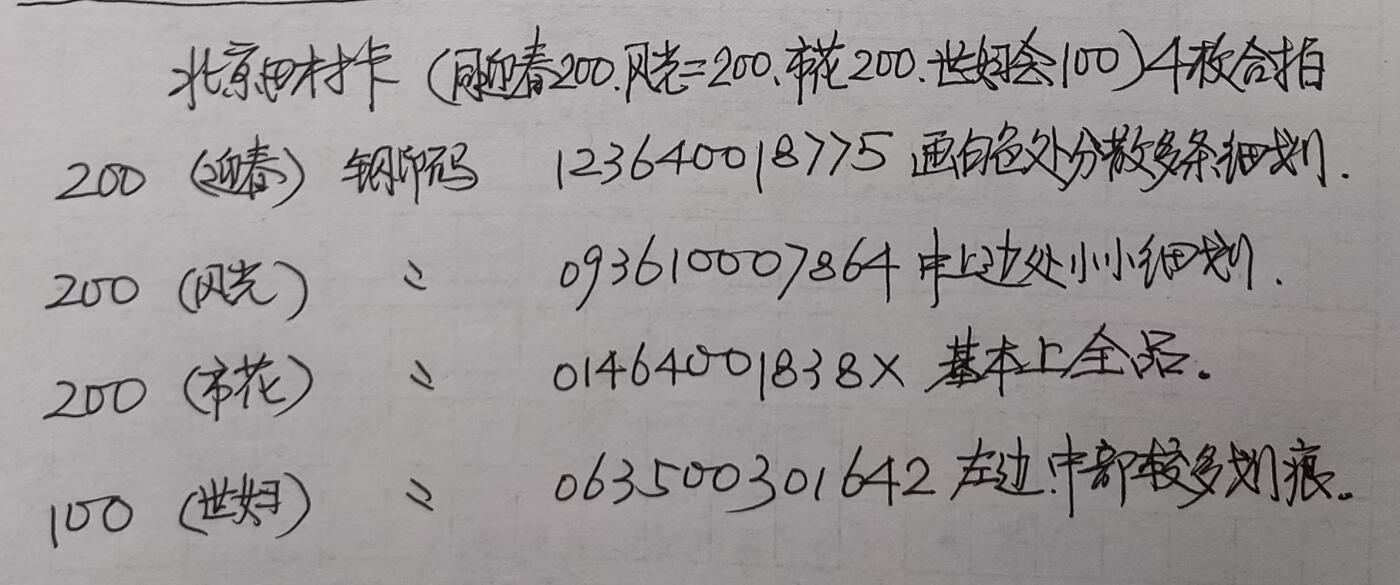 北京田村卡（同迎春200.风光=200.市花200.世妇会100）4枚合拍
200（迎春）钢印码 123640018775 画白色处分散多条细划.
200（风光）〃 093610007864 中上边处小小细划.
200（市花）〃 01464001838X 基本上全品。
100（世妇）〃 063500301642 左边.中部较多划痕。